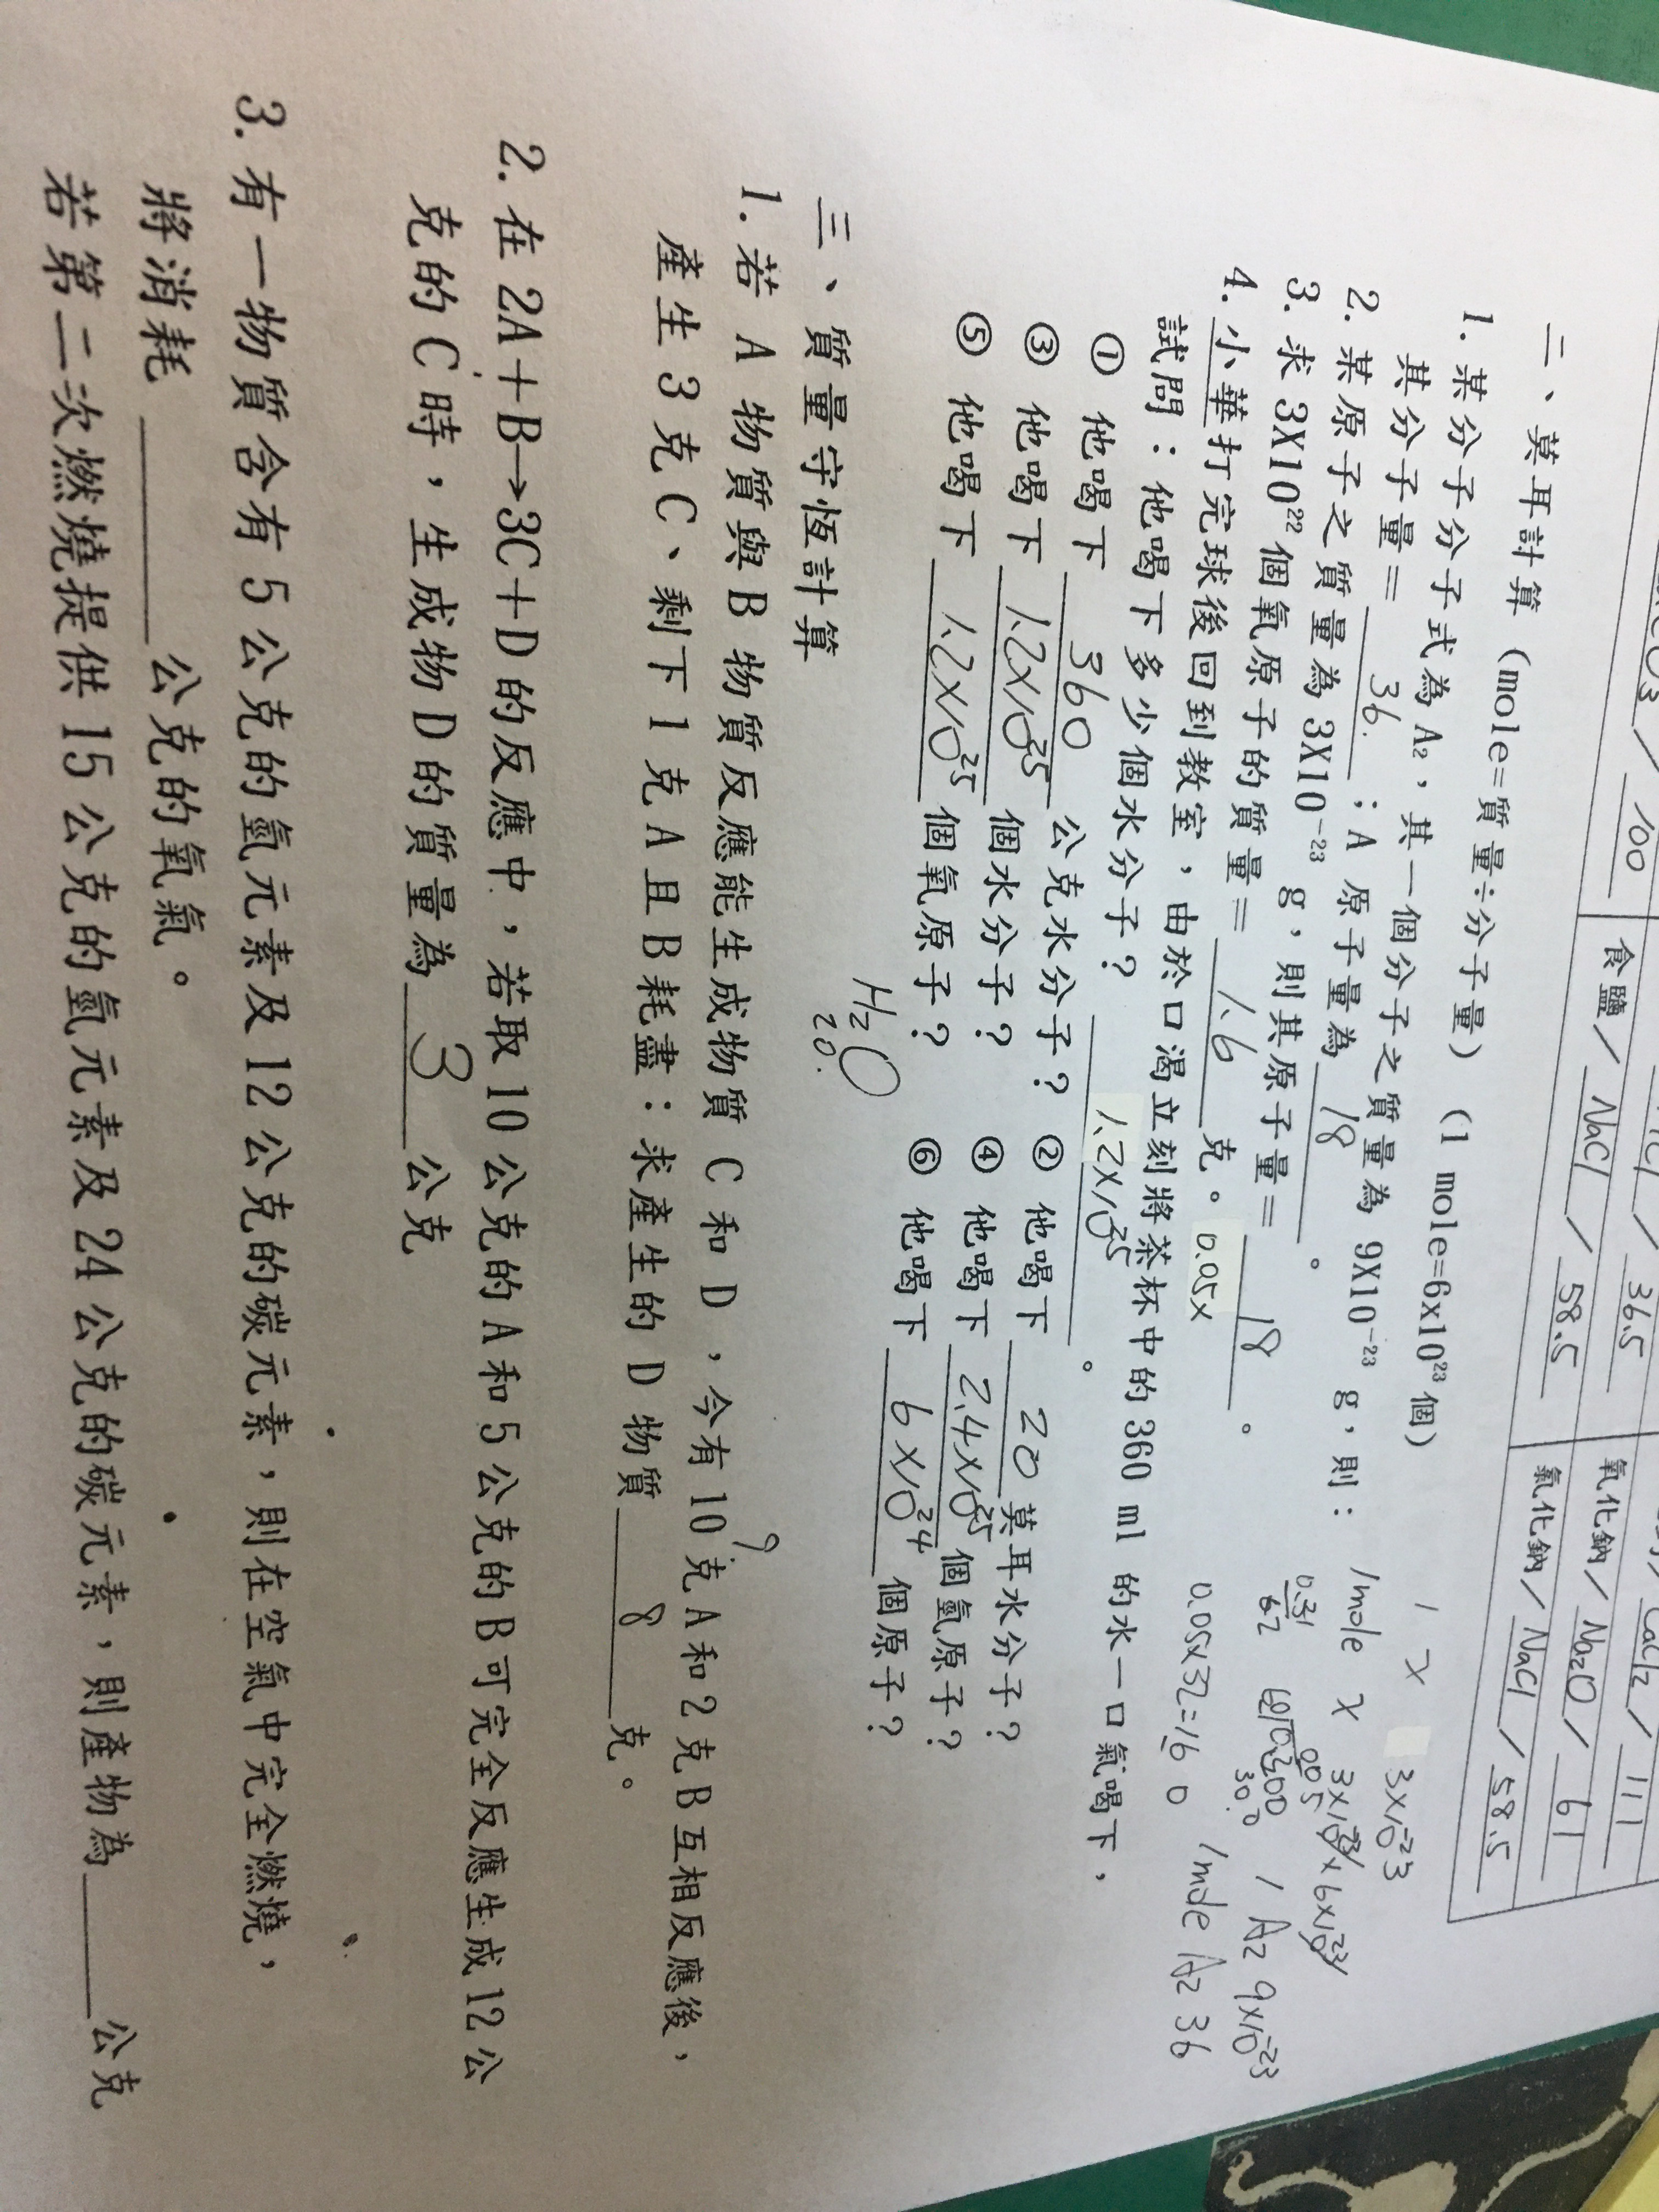 100
食鹽/NaCl/58.5
36.5
氧化鈉/Na₂O/61
CaCl₂/111
氯化鈉/NaCl/58.5
二、莫耳計算 (mole=質量÷分子量) (1 mole=6x10²³個)
1. 某分子分子式為 A₂,其一個分子之質量為 9X10⁻²³ g,則:
其分子量= 36. ;A 原子量為 18 。
2. 某原子之質量為 3X10⁻²³ g,則其原子量= 18 。
3. 求 3X10²² 個氧原子的質量= 1.6 克。 0.05x
4. 小華打完球後回到教室,由於口渴立刻將茶杯中的 360 ml 的水一口氣喝下,
試問:他喝下多少個水分子? 1.2x10²⁵ 。
① 他喝下 360 公克水分子? ② 他喝下 20 莫耳水分子?
③ 他喝下 1.2x10²⁵ 個水分子? ④ 他喝下 2.4x10²⁵ 個氫原子?
⑤ 他喝下 1.2x10²⁵ 個氧原子? ⑥ 他喝下 6x10²⁴ 個原子?
1 x 3x10⁻²³
1mole x 3x10⁻²³x6x10²³
1 A₂ 9x10⁻²³
0.05x32=1.6 0 1mole A₂ 36
H₂O
20.
三、質量守恆計算
1. 若 A 物質與 B 物質反應能生成物質 C 和 D,今有 10 克 A 和 2 克 B 互相反應後,
9
產生 3 克 C、剩下 1 克 A 且 B 耗盡:求產生的 D 物質 8 克。
2. 在 2A+B→3C+D 的反應中,若取 10 公克的 A 和 5 公克的 B 可完全反應生成 12 公
克的 C 時,生成物 D 的質量為 3 公克
3. 有一物質含有 5 公克的氫元素及 12 公克的碳元素,則在空氣中完全燃燒,
將消耗 公克的氧氣。
若第二次燃燒提供 15 公克的氫元素及 24 公克的碳元素,則產物為 公克